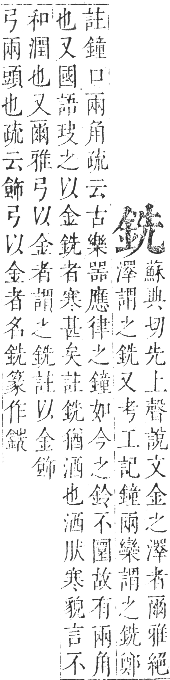 銑
蘇典切先上聲說文金之澤者爾雅絕
澤謂之銑又考工記鐘兩欒謂之銑鄭
註鐘口兩角疏云古樂器應律之鐘如今之鈴不圜故有兩角
也又國語玦之以金銑者寒甚矣註銑猶洒也洒肰寒貌言不
和潤也又爾雅弓以金者謂之銑註以金飾
弓兩頭也疏云飾弓以金者名銑篆作